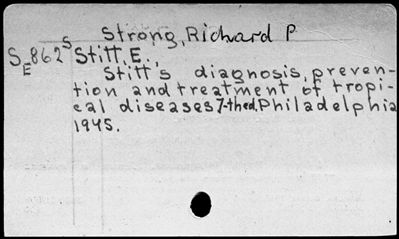 Strong, Richard P
S E 862 S Stitt, E.,
Stitt's diagnosis, preven-
tion and treatment of tropi-
cal diseases 7-th ed, Philadelphia
1945.